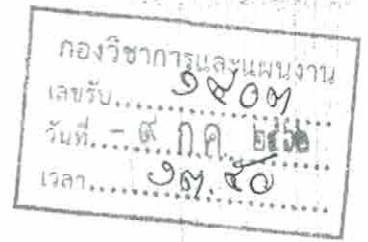 กองวิชาการและแผนงาน
เลขรับ.....๑๙๐๓
วันที่ - ๙ ก.ค. ๒๕๖๒
เวลา.....๑๓.๕๐